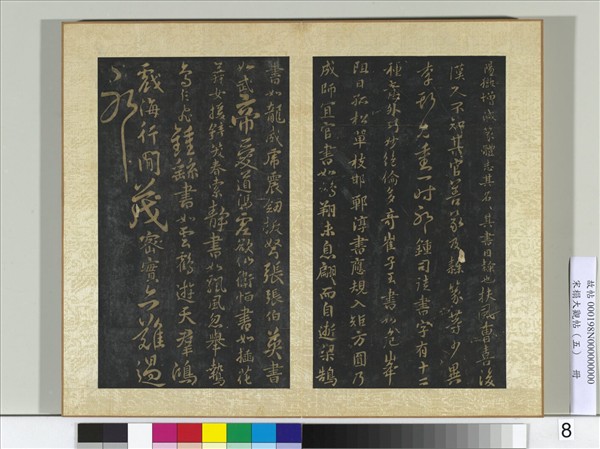 搏成篆體忘其名 其書曰隸也扶風曹喜後
漢人不知其官善篆及隸篆等少異
李斯亦重一時 鍾司徒書字有十二
種意外巧妙絕倫多奇崔子玉書如危峯
阻日孤松單枝邯鄲淳書應規入矩方圓乃
成師宜官書如鵬翔未息翩而自逝梁鵠
書如龍威虎震劍拔弩張張伯英書
如武帝愛道憑虛欲仙衛恒書如插花
舞女援鏡笑春索靖書如飄風忽舉鷙
鳥乍飛鍾繇書如雲鵠遊天羣鴻
戲海行間茂密實亦難過
故帖 000198N000000000
宋搨大觀帖（五） 冊
8